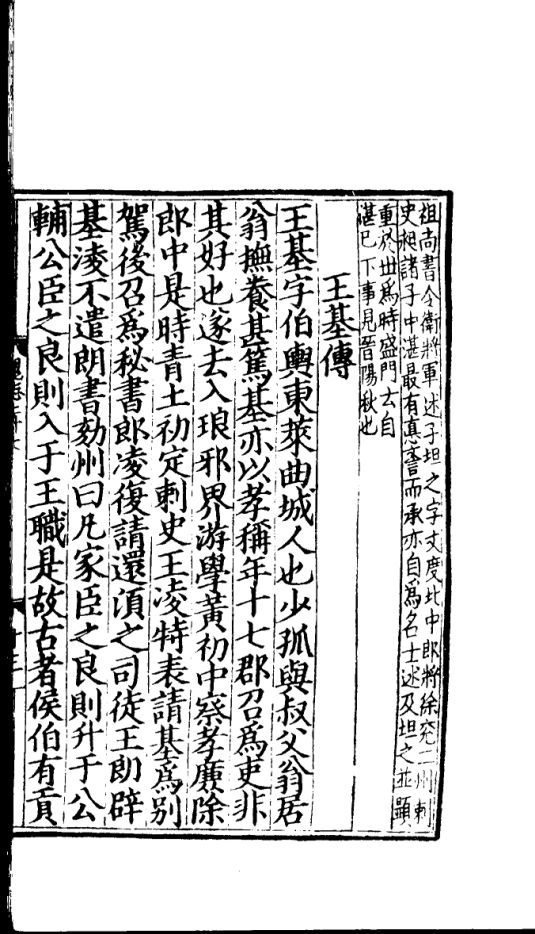 祖尚書令衛將軍述子坦之字文度北中郎將徐兖二州刺
史昶諸子中湛最有德譽而承亦自爲名士述及坦之並顯
重於世爲時盛門云自
湛已下事見晉陽秋也
王基傳
王基字伯輿東萊曲城人也少孤與叔父翁居
翁撫養甚篤基亦以孝稱年十七郡召爲吏非
其好也遂去入琅邪界游學黃初中察孝廉除
郎中是時青土初定刺史王淩特表請基爲別
駕後召爲秘書郎淩復請還頃之司徒王朗辟
基淩不遣朗書劾州曰凡家臣之良則升于公
輔公臣之良則入于王職是故古者侯伯有貢